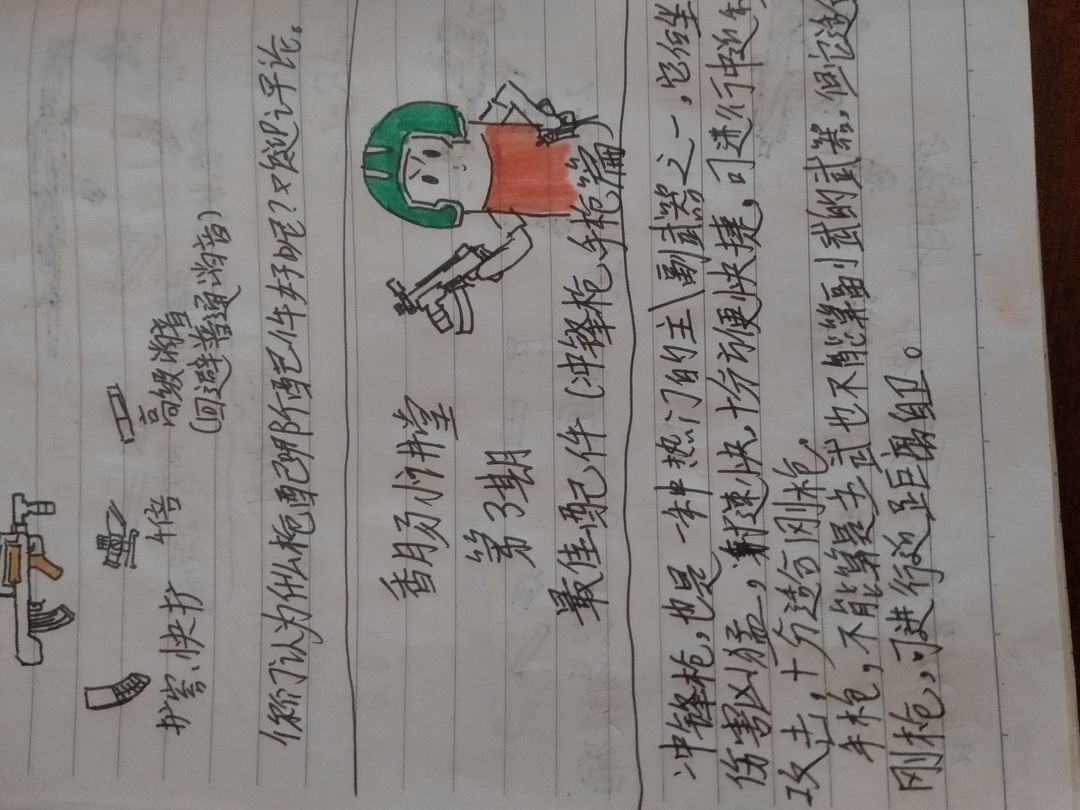 扩容:快扩
4倍
高级消音
(回避普通消音)
你们认为什么枪配哪个配件好呢?欢迎评论。
香肠小讲堂
第3期
最佳配件(冲锋枪手枪篇)
冲锋枪,也是一种热门的主\副武器之一,它但
伤害凶猛,射速快,十分方便快捷,可进行中近
攻击,十分适合刚枪,
手枪,不能算是主武也不能算副武的武器,但它
刚枪,可进行近距离自卫。